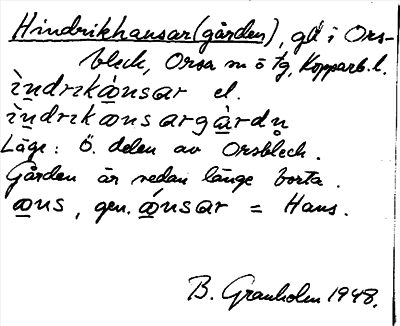 Hindrikhansar (gården), gd i Ors-
bleck, Orsa sn o tg, Kopparb. l.
ìndrɩkáonsar el.
ìndrɩkaonsargàrdn̥
Läge: Ö. delen av Orsbleck.
Gården är redan länge borta.
aons, gen. áonsar = Hans.
B. Granholm 1948.